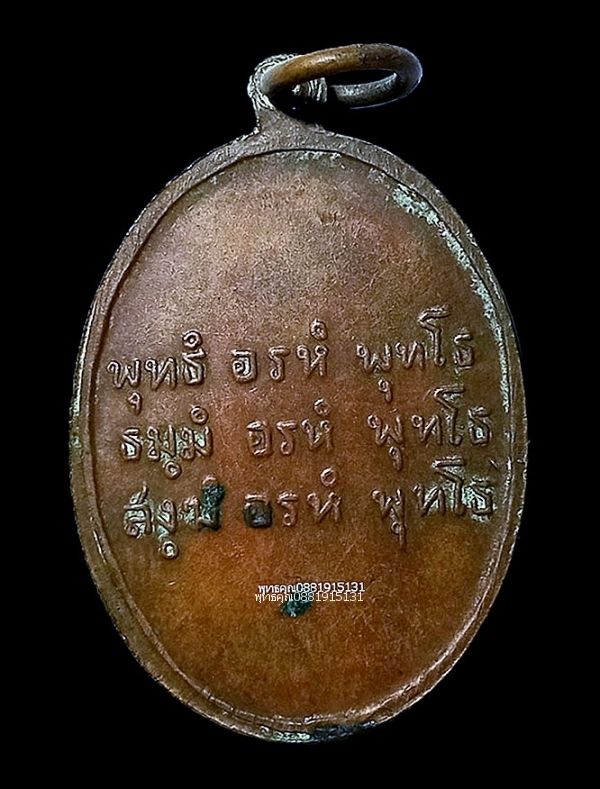 พุทธํ อรหํ พุทโธ
ธมฺมํ อรหํ พุทโธ
สงฺฆํ อรหํ พุทโธ
พุทธคุณ0881915131
พุทธคุณ0881915131